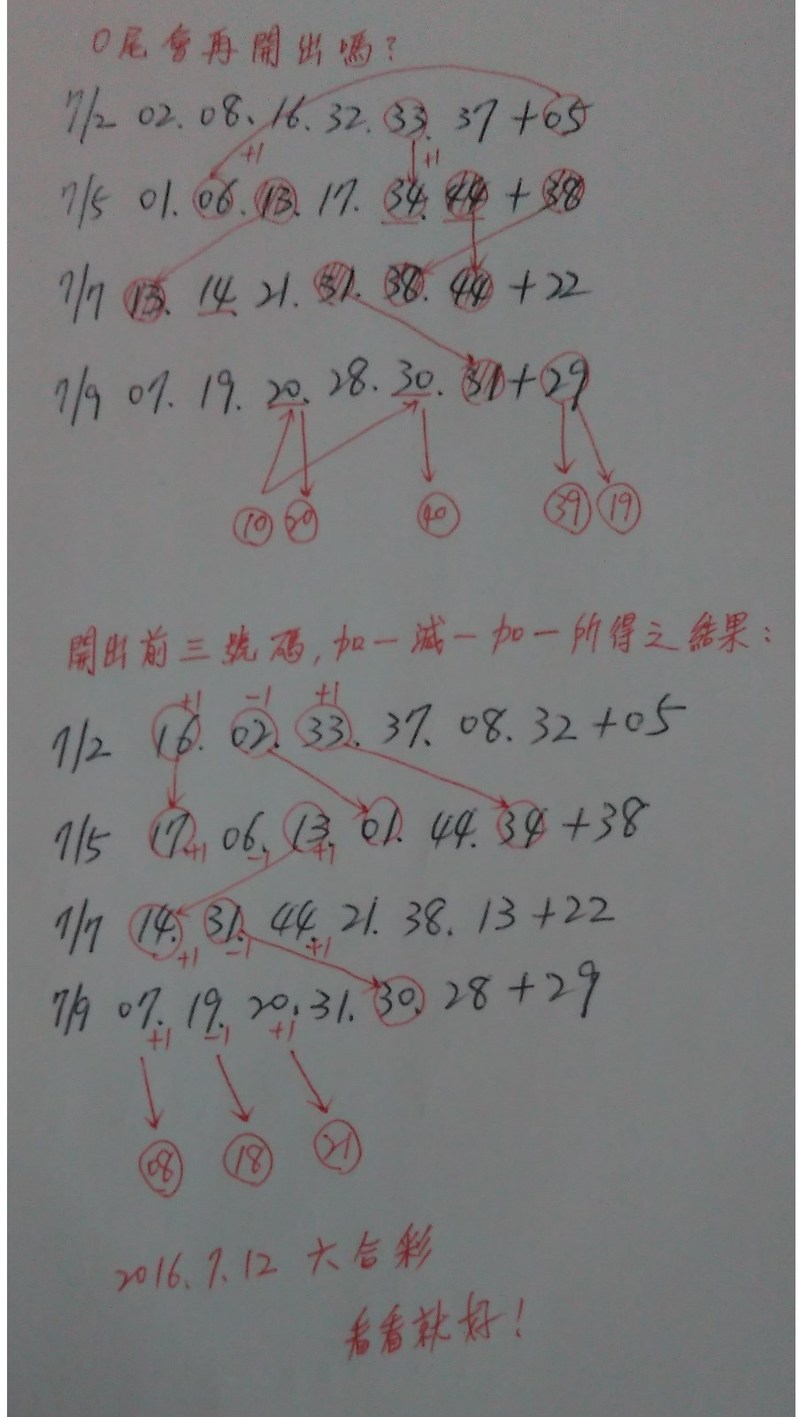 0尾會再開出嗎?
7/2 02. 08. 16. 32. 33. 37 +05
+1 +1
7/5 01. 06. 13. 17. 34. 44 + 38
7/7 13. 14. 21. 31. 38. 44 +22
7/9 07. 19. 20. 28. 30. 31 +29
10 20 40 39 19
開出前三號碼,加一減一加一所得之結果:
+1 -1 +1
7/2 16. 02. 33. 37. 08. 32 +05
7/5 17. 06. 13. 01. 44. 34 +38
+1 -1 +1
7/7 14. 31. 44. 21. 38. 13 +22
+1 -1 +1
7/9 07. 19. 20. 31. 30. 28 +29
+1 -1 +1
08 18 21
2016.7.12 大合彩
看看就好!